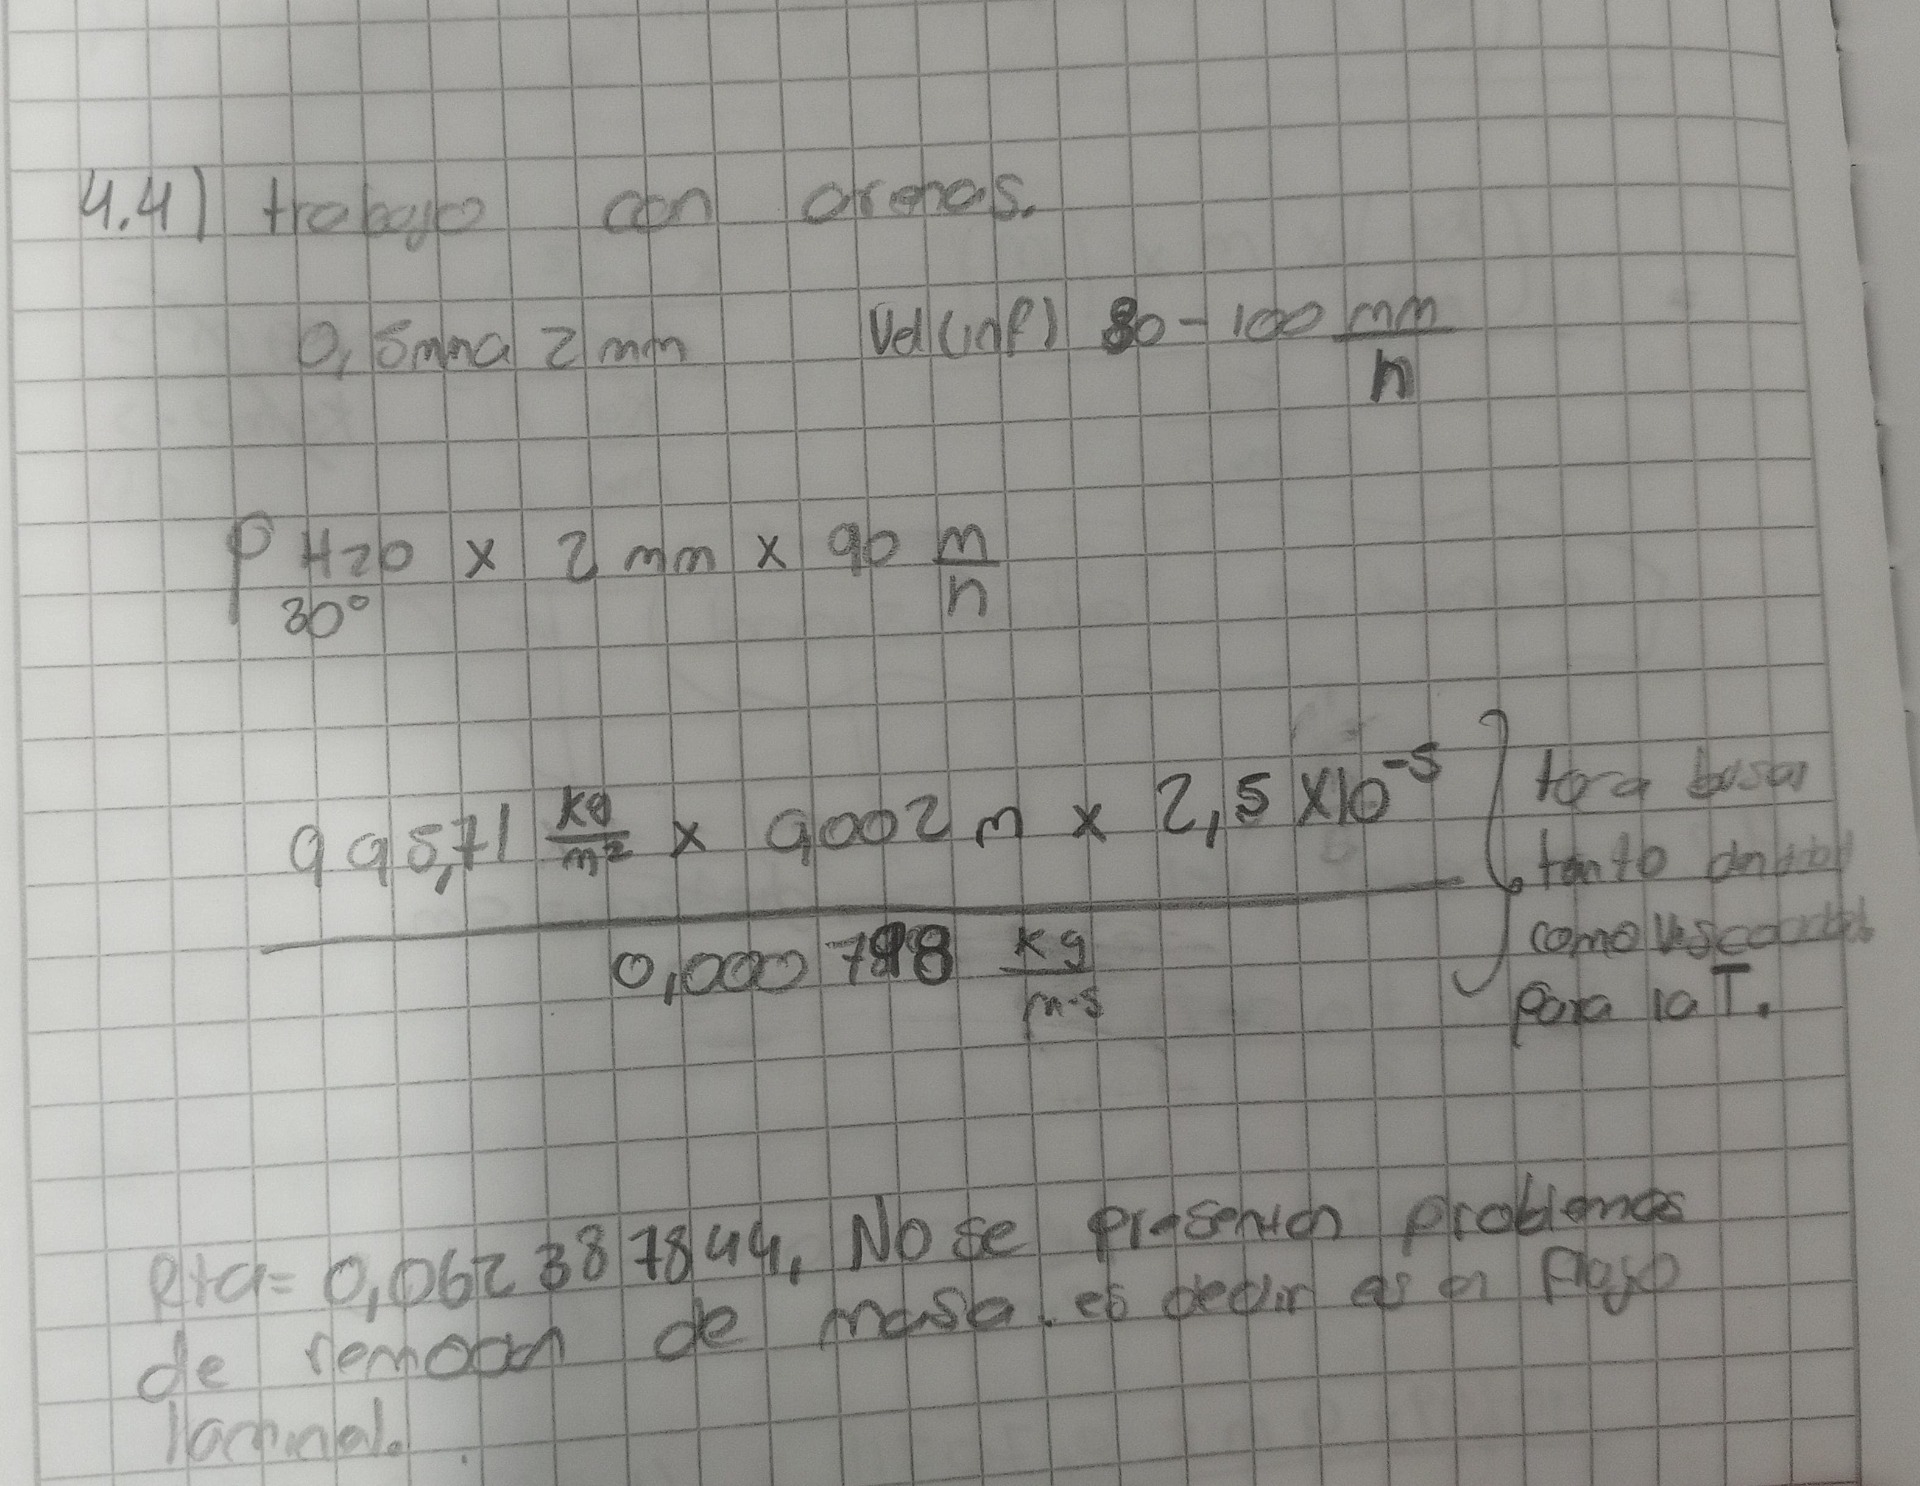 4.4) trabajo con arenas.
0,5mm a 2 mm Vel (inf) 80 - 100 mm/h
ρ H2O 30° x 2 mm x 90 m/h
995,71 kg/m² x 0,002 m x 2,5 x10⁻⁵
0,000798 kg/m·s
tanto
como
para la T.
Rta= 0,062387844, No se presentan problemas
de remocion de masa. es decir es el flujo
laminal.